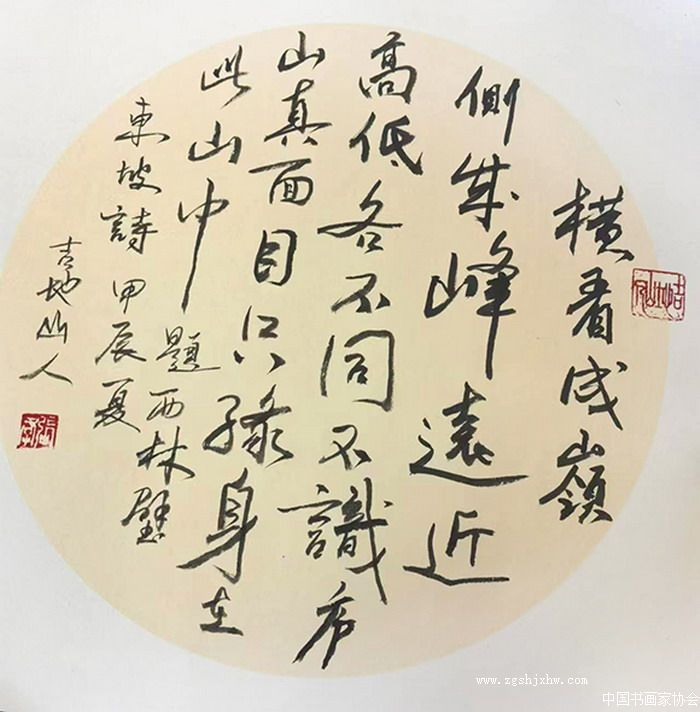 横看成嶺
側成峰遠近
高低各不同不識
山真面目只緣身在
此山中
題西林壁
東坡詩甲辰夏
吉地山人
www.zgshjxhw.com
中国书画家协会